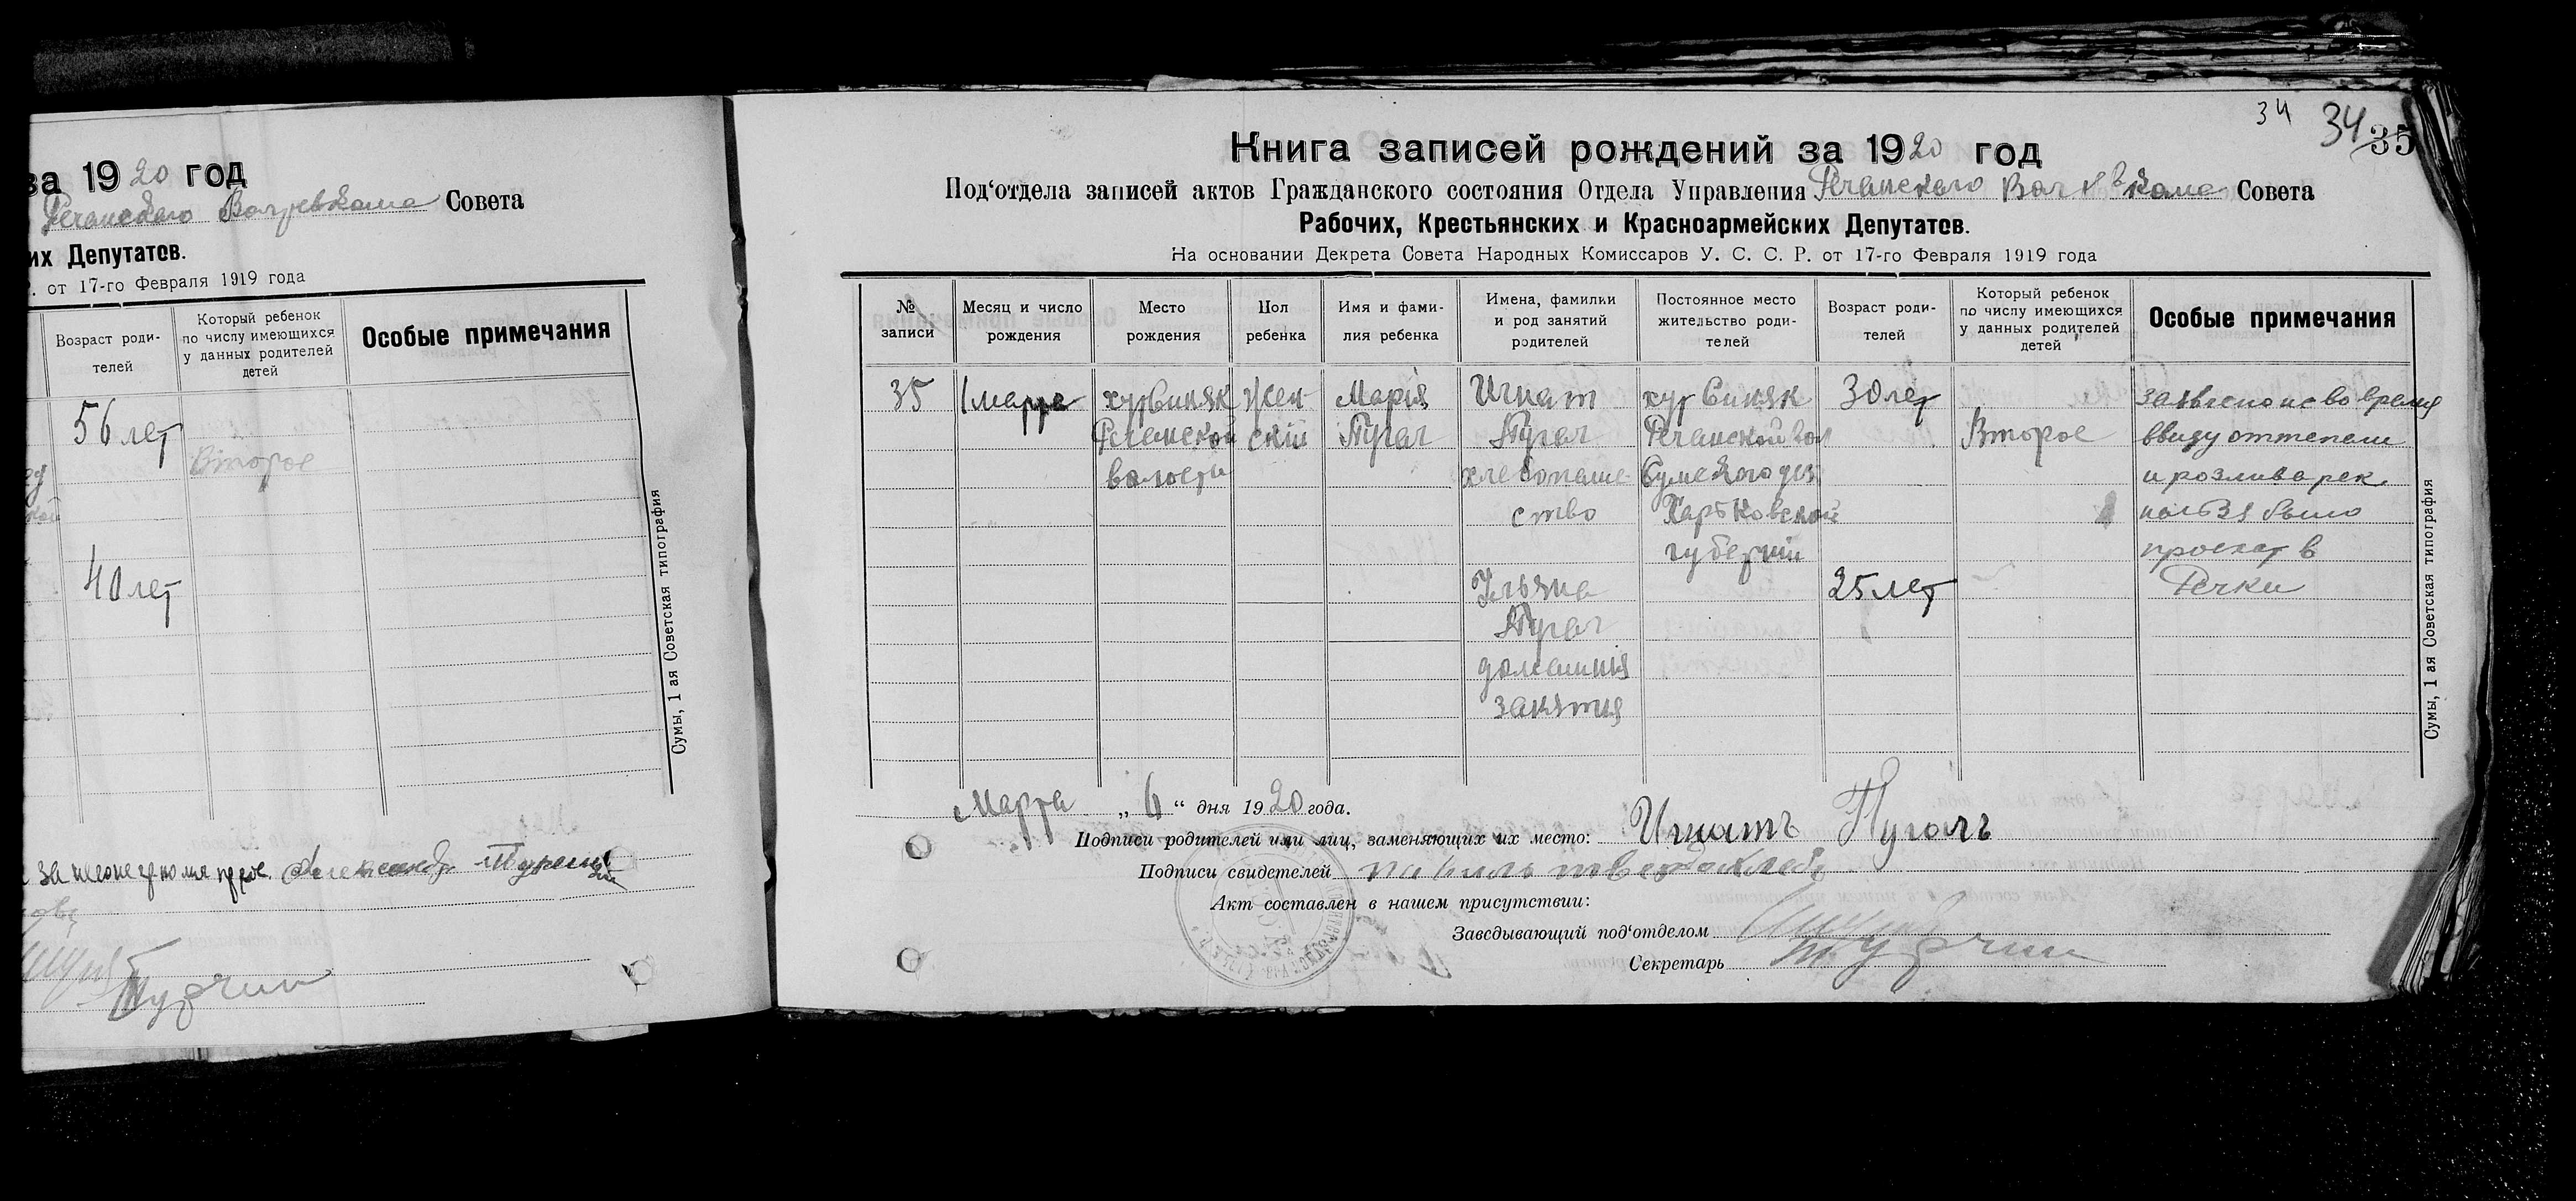 за 1920 год
Речанского Волревкома Совета
их Депутатов.
. от 17-го Февраля 1919 года
Возраст роди-
телей
Который ребенок
по числу имеющихся
у данных родителей
детей
Особые примечания
56 лет
Второе
40 лет
Сумы, 1 ая Советская типография
Александр
Турчин
34 34/35
Книга записей рождений за 1920 год
Под‘отдела записей актов Гражданского состояния Отдела Управления Речанского Вол Ревкома Совета
Рабочих, Крестьянских и Красноармейских Депутатов.
На основании Декрета Совета Народных Комиссаров У. С. С. Р. от 17-го Февраля 1919 года
№
записи
Месяц и число
рождения
Место
рождения
Пол
ребенка
Имя и фами-
лия ребенка
Имена, фамилии
и род занятий
родителей
Постоянное место
жительство роди-
телей
Возраст роди-
телей
Который ребенок
по числу имеющихся
у данных родителей
детей
Особые примечания
35
1 марта
хут Синяк
Речанской
волости
Жен-
скій
Марія
Пугач
Игнат
Пугач
хлебопаше-
ство
Ульяна
Пугач
домашния
занятия
хут Синяк
Речанской вол
Сумского уез
Харьковской
губерніи
30 лет
25 лет
Второе
заявлено не во время
ввиду оттепели
и розлива рек
нельзя было
проехат в
Речки
Сумы, 1 ая Советская типография
Марта „6“ дня 1920 года.
Подписи родителей или лиц, заменяющих их место: Игнатъ Пугачъ
Подписи свидетелей
Акт составлен в нашем присутствии:
Заведывающий под‘отделом
Секретарь Турчин